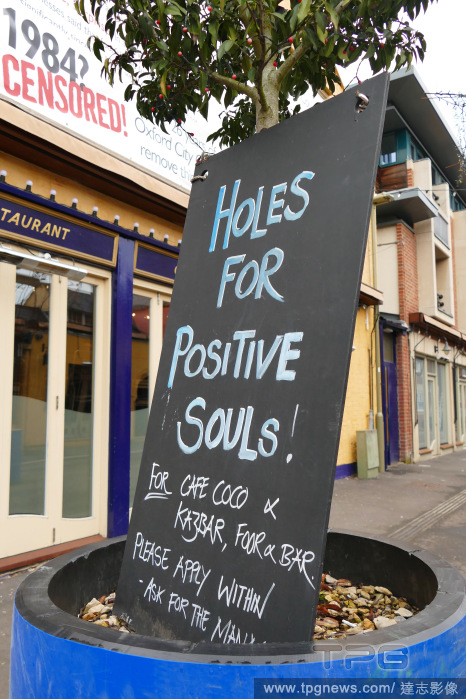 1984?
CENSORED!
Oxford City
remove th
STAURANT
HOLES
FOR
POSITIVE
SOULS!
FOR CAFE COCO &
KAZBAR, FOOR & BAR
PLEASE APPLY WITHIN
- ASK FOR THE MAN
TPG
www.tpgnews.com/ 達志影像